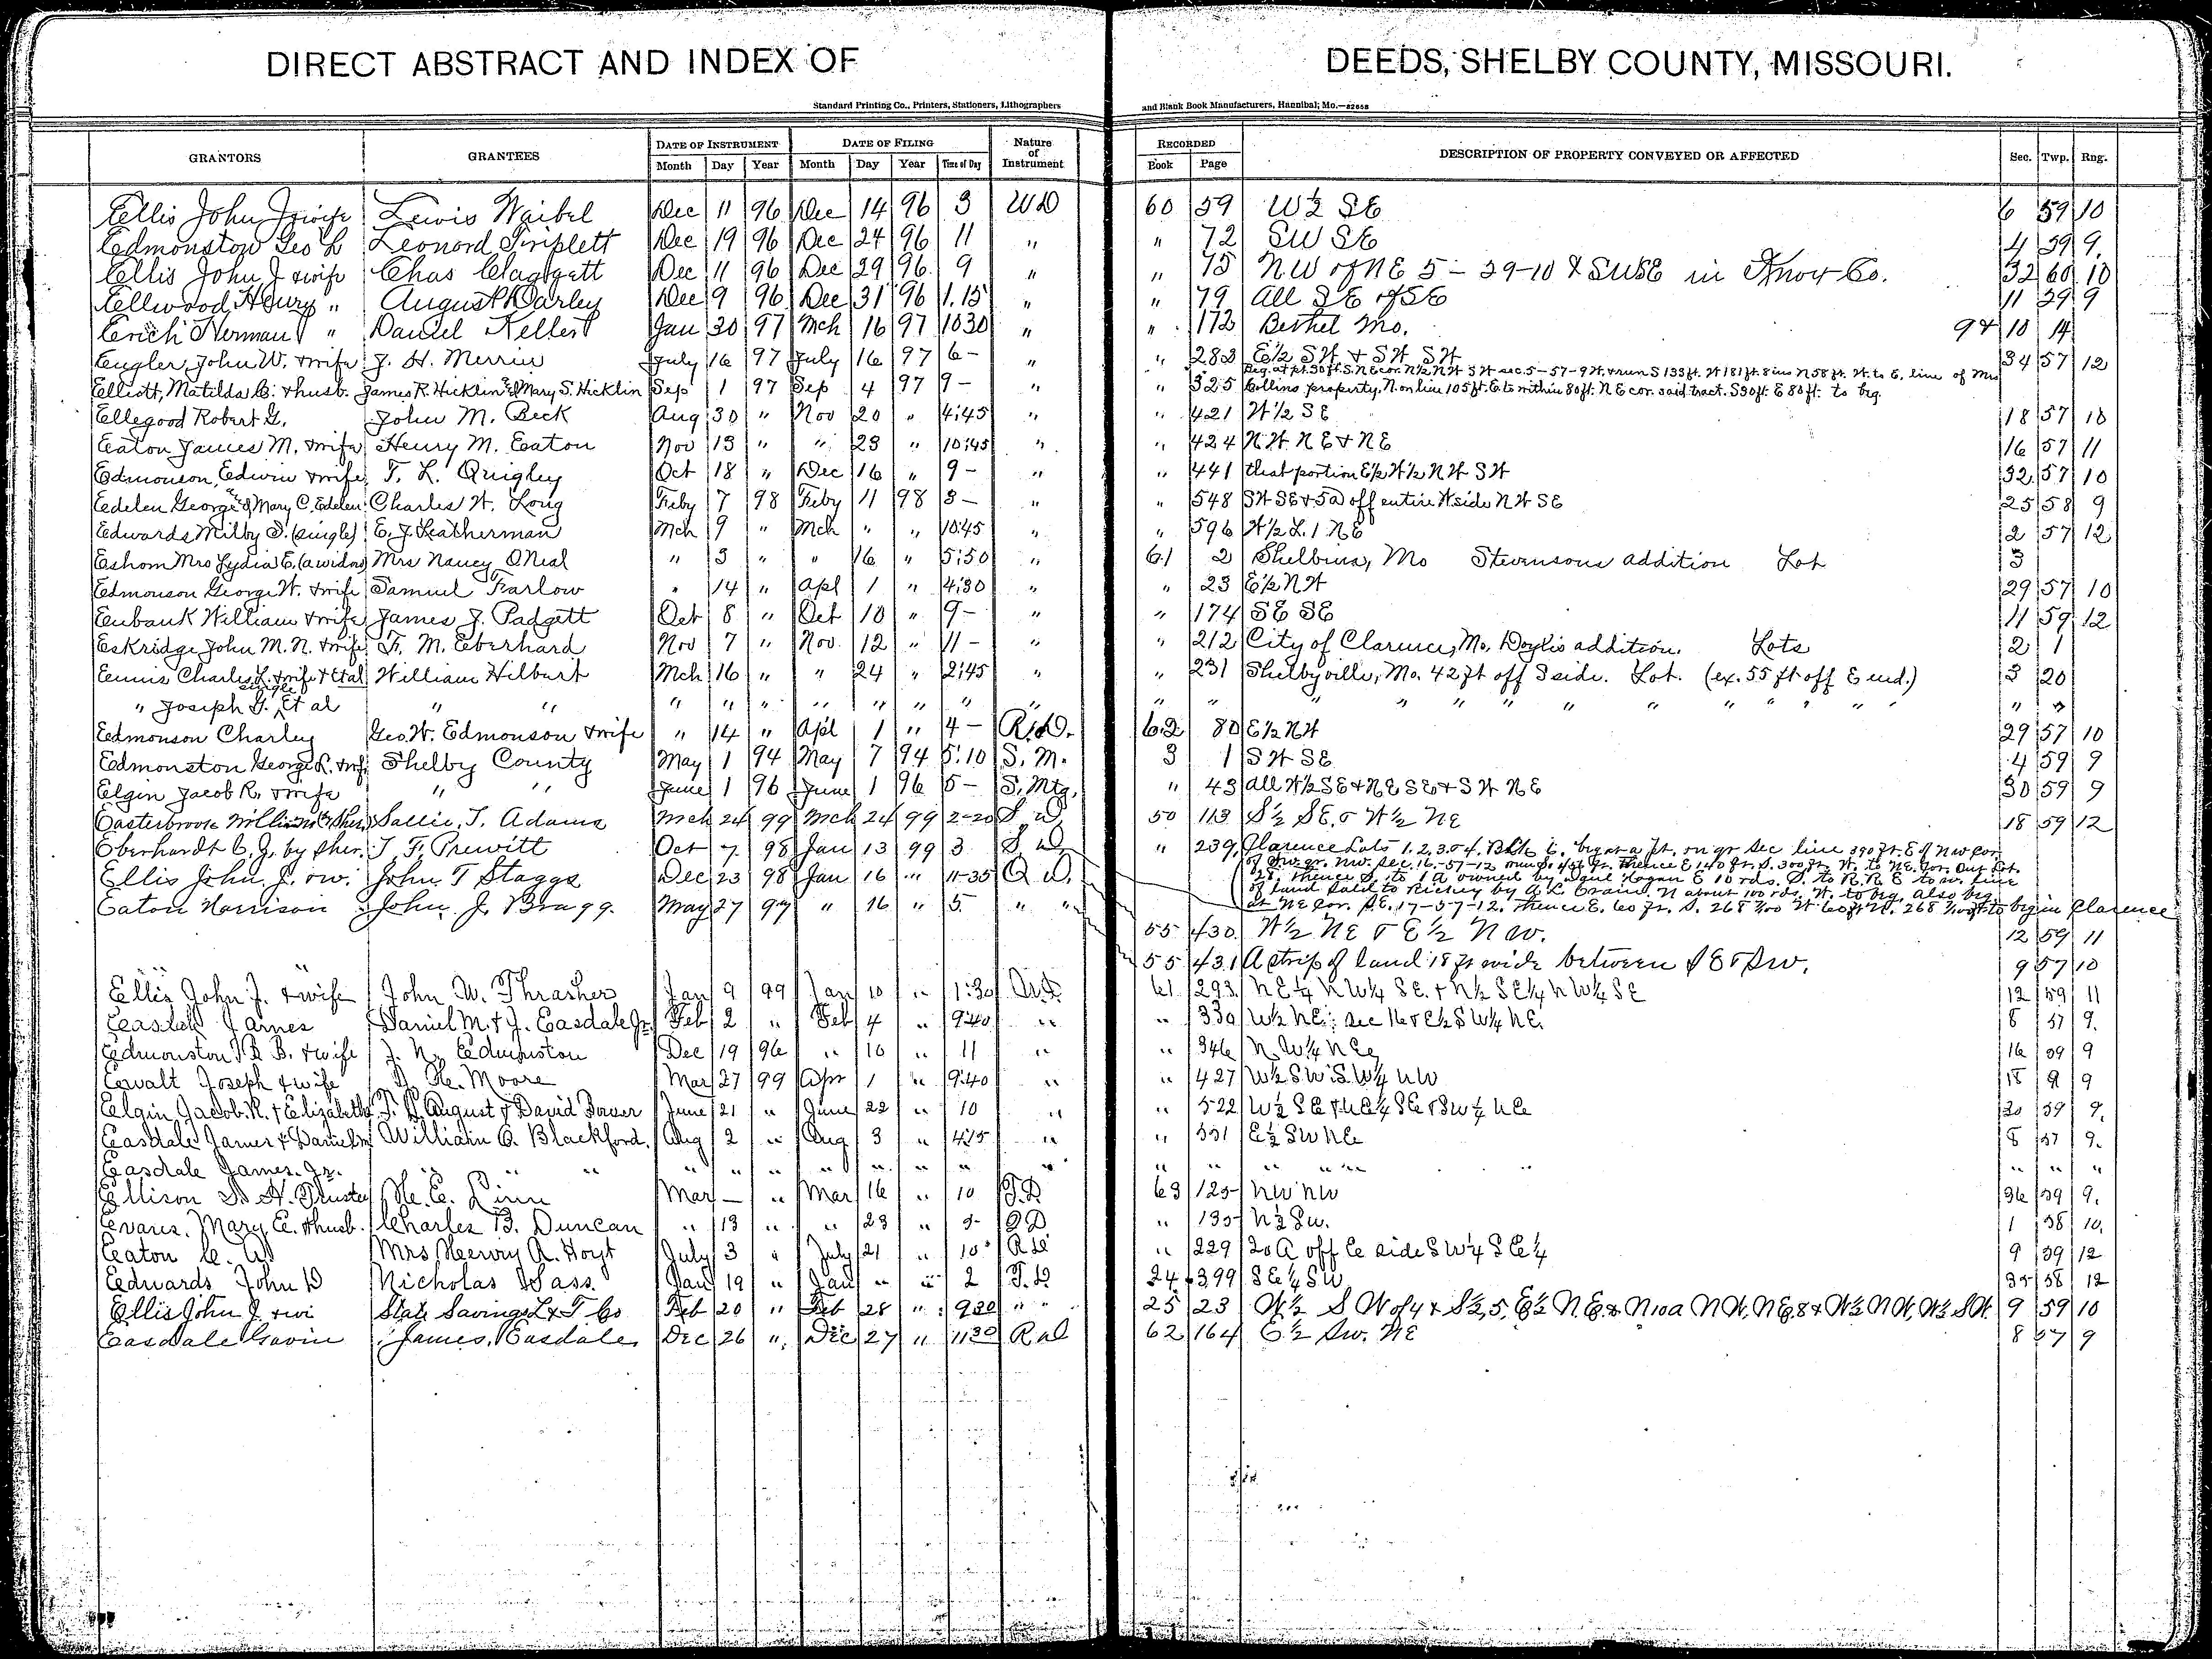 DIRECT ABSTRACT AND INDEX OF DEEDS, SHELBY COUNTY, MISSOURI.
Standard Printing Co., Printers, Stationers, Lithographers and Blank Book Manufacturers, Hannibal, Mo.—82658
GRANTORS GRANTEES DATE OF INSTRUMENT DATE OF FILING Nature of Instrument RECORDED DESCRIPTION OF PROPERTY CONVEYED OR AFFECTED Sec. Twp. Rng.
Month Day Year Month Day Year Time of Day Book Page
Ellis John J wife Lewis Waibel Dec 11 96 Dec 14 96 3 WD 60 59 W½ SE 6 59 10
Edmonston Geo L Leonord Triplett Dec 19 96 Dec 24 96 11 " " 72 SW SE 4 59 9.
Ellis John J & wife Chas Claggett Dec 11 96 Dec 29 96 9 " " 75 NW of NE 5-59-10 & SWSE in Knox Co. 32 60 10
Ellwood Henry " August Darley Dec 9 96 Dec 31 96 1.15 " " 79 All SE of SE 11 59 9
Erich Herman " Daniel Kellert Jan 30 97 Mch 16 97 1030 " " 172 Bethel Mo. 9& 10 14
Engler John W. & wife J. H. Merrin July 16 97 July 16 97 6- " " 282 E½ SW & SW SW 34 57 12
Beg. at pt. 30 ft. S. N E cor. N½ N W S W sec. 5-57-9 W. & run S 133 ft. W 181 ft. 8 ins N 58 ft. W. to E. line of Mrs
Elliott, Matilda C. & husb. James R. Hicklin & Mary S. Hicklin Sep 1 97 Sep 4 97 9- " " 325 Collins property, N. on line 105 ft. E to within 80 ft. N E cor. said tract. S 30 ft. E 80 ft. to beg.
Ellegood Robert G. John M. Beck Aug 30 " Nov 20 " 4:45 " " 421 W½ SE 18 57 10
Eaton James M. & wife Henry M. Eaton Nov 13 " " 23 " 10:45 " " 424 N W N E & N E 16 57 11
Edmonson, Edwin & wife T. L. Quigley Oct 18 " Dec 16 " 9- " " 441 that portion E½ W½ N W S W 32 57 10
Edelen George & Mary C. Edelen Charles W. Long Feby 7 98 Feby 11 98 3- " " 548 SW SE & 5a off entire W side N W SE 25 58 9
Edwards Milby S. (single) E. J. Leatherman Mch 9 " Mch " " 10:45 " " 596 W½ L. 1 N E 2 57 12
Eshom Mrs Lydia E, (a widow) Mrs Nancy ONeal " 3 " " 16 " 5:50 " 61 2 Shelbina, Mo Stevensons addition Lot 3
Edmonson George W. & wife Samuel Farlow " 14 " Apl 1 " 4:30 " " 23 E½ N W 29 57 10
Eubank William & wife James J. Padgett Oct 8 " Oct 10 " 9- " " 174 SE SE 11 59 12
Eskridge John M. N. & wife F. M. Eberhard Nov 7 " Nov. 12 " 11- " " 212 City of Clarence, Mo, Doyles addition. Lots 2 1
Ennis Charles L. & wife & Et al William Hilburt Mch 16 " " 24 " 2:45 " " 231 Shelbyville, Mo. 42 ft off S side. Lot. (ex. 55 ft off E end.) 3 20
" Joseph G. single Et al " " " " " " " " " " " " " " " " " " " " " " "
Edmonson Charley Geo. W. Edmonson & wife " 14 " Apl 1 " 4- R.D. 62 80 E½ N W 29 57 10
Edmonston George R. & wf. Shelby County May 1 94 May 7 94 5:10 S. M. 3 1 S W SE 4 59 9
Elgin Jacob R. & wife " " June 1 96 June 1 96 5- S. Mtg. " 43 all W½ SE & N E SE & S W N E 30 59 9
Easterbrook William by Sher Sallie. T. Adams Mch 24 99 Mch 24 99 2-20 S. D. 50 113 S½ SE. & W½ NE 18 59 12
Eberhardt C. J. by Sher. T. F. Prewitt Oct 7 98 Jan 13 99 3 S. D. " 239 Clarence Lots 1, 2, 3, & 4, Blk 6. beg at a pt. on qr sec line 390 ft. E of NW cor
of SW qr. NW. Sec. 16-57-12, thence E 140 ft. S. 300 ft. W. to N.E. cor. Out Lot
28. thence S. to 1 A owned by Hogan E 10 rds. S. to R.R. E to line
of land sold to Richey by A.L. Crain. N about 100 rds. W. to beg. also beg.
at NE cor. SE. 17-57-12. thence E. 60 ft. S. 268 W 60 ft N. 268 to beg in Clarence
Ellis John. J. & w. John T Staggs Dec 23 98 Jan 16 " 11-35 Q. D. 55 430 W½ NE & E½ NW. 12 59 11
Eaton Harrison John. J. Bragg. May 27 97 " 16 " 5. " " 55 431 A strip of land 18 ft wide between SE & SW. 9 57 10
Ellis John J. & wife John W. Thrasher Jan 9 99 Jan 10 " 1:30 W.D. 61 293 NE¼ NW¼ SE. & N½ SE¼ NW¼ SE 12 59 11
Easdale James Daniel M. & J. Easdale Jr. Feb 2 " Feb 4 " 9:40 " " 330 W½ NE; sec 16 & E½ SW¼ NE. 8 57 9.
Edmonston R B. & wife J. N. Edmonston Dec 19 96 " 10 " 11 " " 346 N.W¼ NE 16 59 9
Ewalt Joseph & wife D. H. Moore Mar 27 99 Apr 1 " 9:40 " " 427 W½ SW SW¼ NW 18 9
Elgin Jacob. R. & Elizabeth T. L. August & David Bower June 21 " June 22 " 10 " " 522 W½ SE & NE¼ SE & SW¼ NE 30 59 9.
Easdale James & Daniel M William C. Blackford. Aug 2 " Aug 3 " 4:15 " " 551 E½ SW NE 8 57 9.
Easdale James. Jr. " " " " " " " " " " " " " " " " " " "
Ellison D. H. Trustee H. E. Linn Mar — " Mar 16 " 10 T.D. 63 125 NW NW 36 59 9.
Evans, Mary E. & husb. Charles B. Duncan " 13 " " 23 " 5- Q D " 135 N½ SW. 1 58 10.
Eaton C. A Mrs Henry A. Hoyt July 3 " July 21 " 10 R D " 229 20 A off E side SW¼ SE¼ 9 59 12
Edwards John D Nicholas Sass. Jan 19 " Jan " " 2 T. D 24 399 SE¼ SW 35 58 12
Ellis John J. & wi State Savings L & T. Co Feb 20 " Feb 28 " 9 30 " " 25 23 W½ SW of 4 & S½, 5, E½ N.E. & N 10a N W, NE, 8 & W½ N W, W½ SW. 9 59 10
Easdale Gavin James, Easdale Dec 26 " Dec 27 " 11 30 R D 62 164 E½ SW. NE 8 57 9